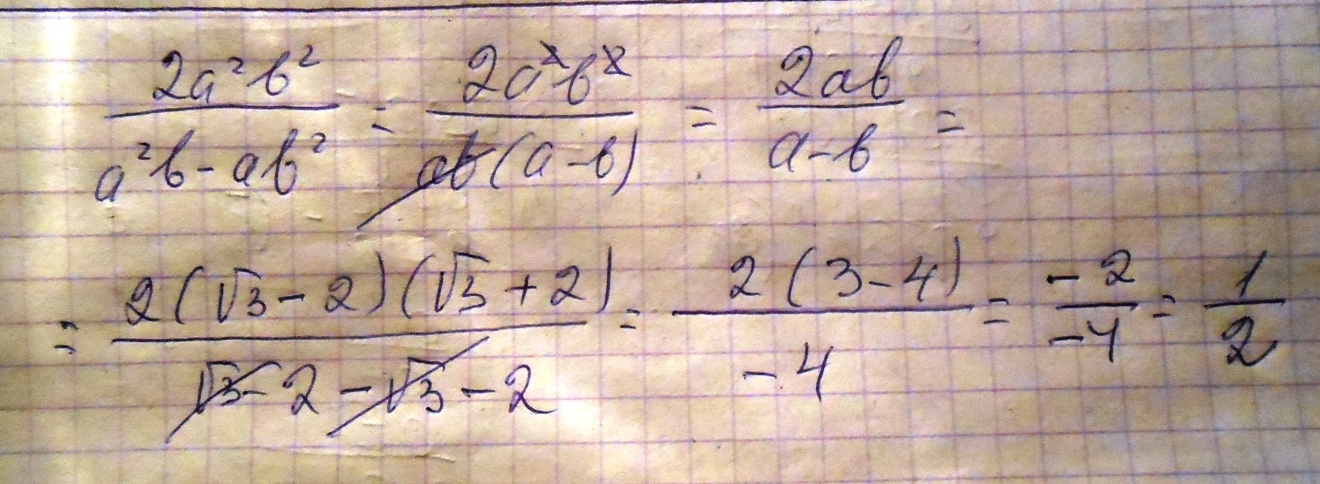 2a²b² / (a²b - ab²) = 2a²b² / (ab(a - b)) = 2ab / (a - b) =
= 2(√3 - 2)(√3 + 2) / (√3 - 2 - √3 - 2) = 2(3 - 4) / -4 = -2 / -4 = 1 / 2